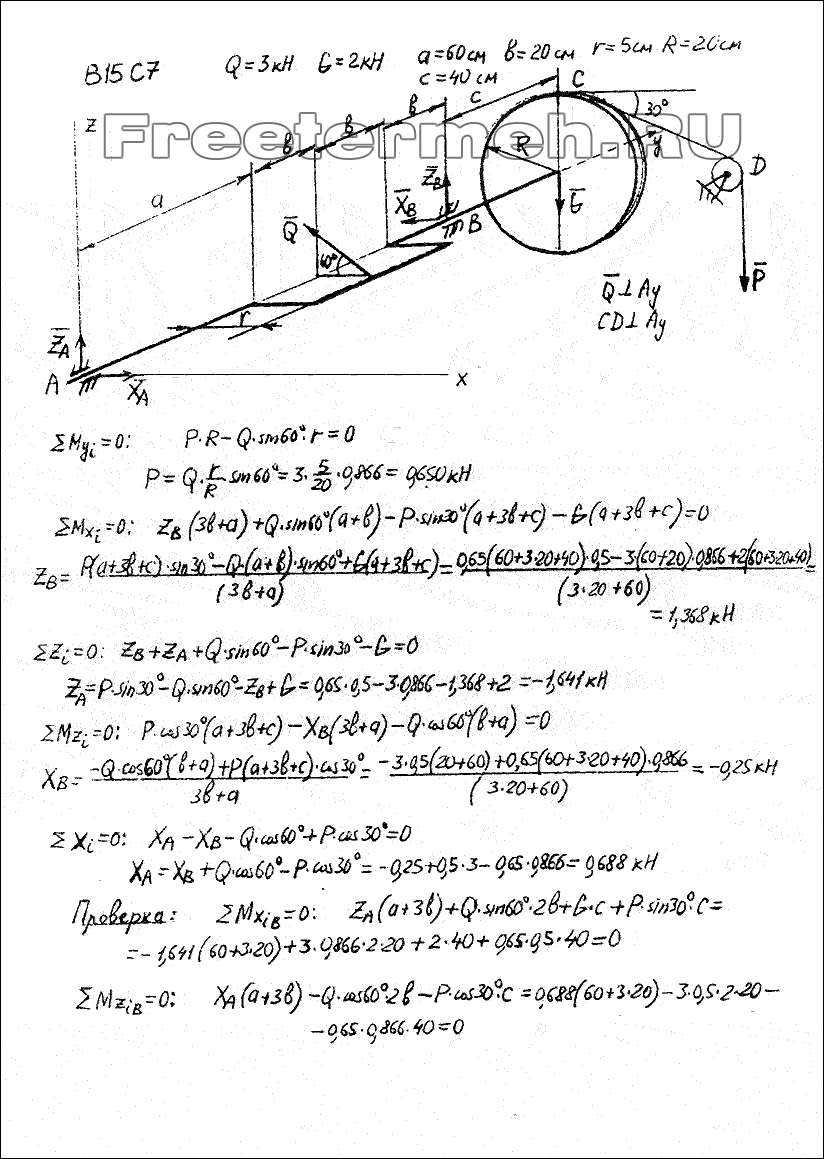 В15 С7 Q=3кН G=2кН a=60см b=20см r=5см R=20см
c=40см
Freetermeh.RU
z
a
b
b
b
c
C
30°
R
y
D
Z̄_B
X̄_B
B
Ḡ
P̄
Q̄
60°
r
Q̄⊥Ay
CD⊥Ay
Z̄_A
A
X̄_A
x
ΣMy_i=0: P·R−Q·sin60°·r=0
P=Q·r/R·sin60°=3·5/20·0,866=0,650кН
ΣMx_i=0: Z_B(3b+a)+Q·sin60°(a+b)−P·sin30°(a+3b+c)−G(a+3b+c)=0
Z_B=(P(a+3b+c)·sin30°−Q·(a+b)·sin60°+G(a+3b+c))/(3b+a)=(0,65(60+3·20+40)·0,5−3(60+20)·0,866+2(60+3·20+40))/(3·20+60)=
=1,368кН
ΣZ_i=0: Z_B+Z_A+Q·sin60°−P·sin30°−G=0
Z_A=P·sin30°−Q·sin60°−Z_B+G=0,65·0,5−3·0,866−1,368+2=−1,641кН
ΣMz_i=0: P·cos30°(a+3b+c)−X_B(3b+a)−Q·cos60°(b+a)=0
X_B=(−Q·cos60°(b+a)+P(a+3b+c)·cos30°)/(3b+a)=(−3·0,5(20+60)+0,65(60+3·20+40)·0,866)/(3·20+60)=−0,25кН
ΣX_i=0: X_A−X_B−Q·cos60°+P·cos30°=0
X_A=X_B+Q·cos60°−P·cos30°=−0,25+0,5·3−0,65·0,866=0,688кН
Проверка: ΣMx_iB=0: Z_A(a+3b)+Q·sin60°·2b+G·c+P·sin30°·c=
=−1,641(60+3·20)+3·0,866·2·20+2·40+0,65·0,5·40=0
ΣMz_iB=0: X_A(a+3b)−Q·cos60°·2b−P·cos30°·c=0,688(60+3·20)−3·0,5·2·20−
−0,65·0,866·40=0